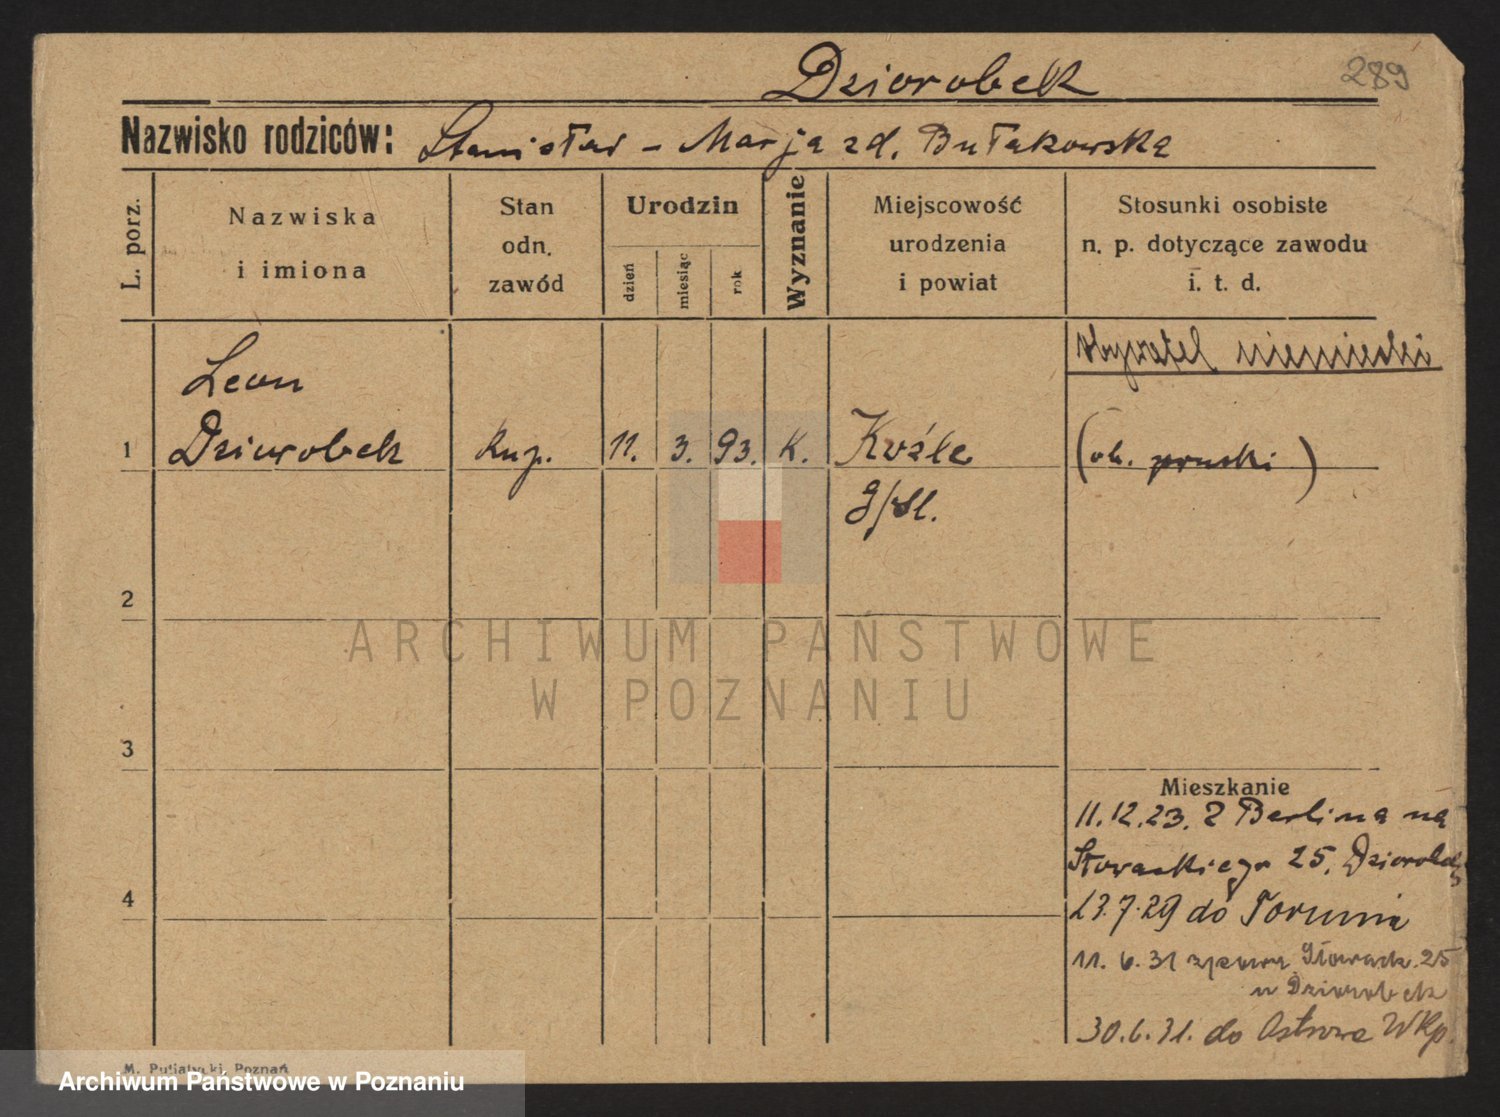 Dziorobek
289
Nazwisko rodziców: Stanisław - Marja zd. Bułakowska
L. porz.
Nazwiska
i imiona
Stan
odn.
zawód
Urodzin
dzień
miesiąc
rok
Wyznanie
Miejscowość
urodzenia
i powiat
Stosunki osobiste
n. p. dotyczące zawodu
i. t. d.
obywatel niemiecki
Leon
1 Dziorobek kup. 11. 3. 93. K. Koźle (ob. pruski)
g/Sl.
2
3
4
Mieszkanie
11.12.23. z Berlina na
Słowackiego 25, Dziorobek
23.7.29 do Torunia
11. 6. 31 Słowack. 25
u Dziorobek
30.6.31. do Ostrowa Wkp.
ARCHIWUM PAŃSTWOWE
W POZNANIU
M. Putiatycki, Poznań
Archiwum Państwowe w Poznaniu